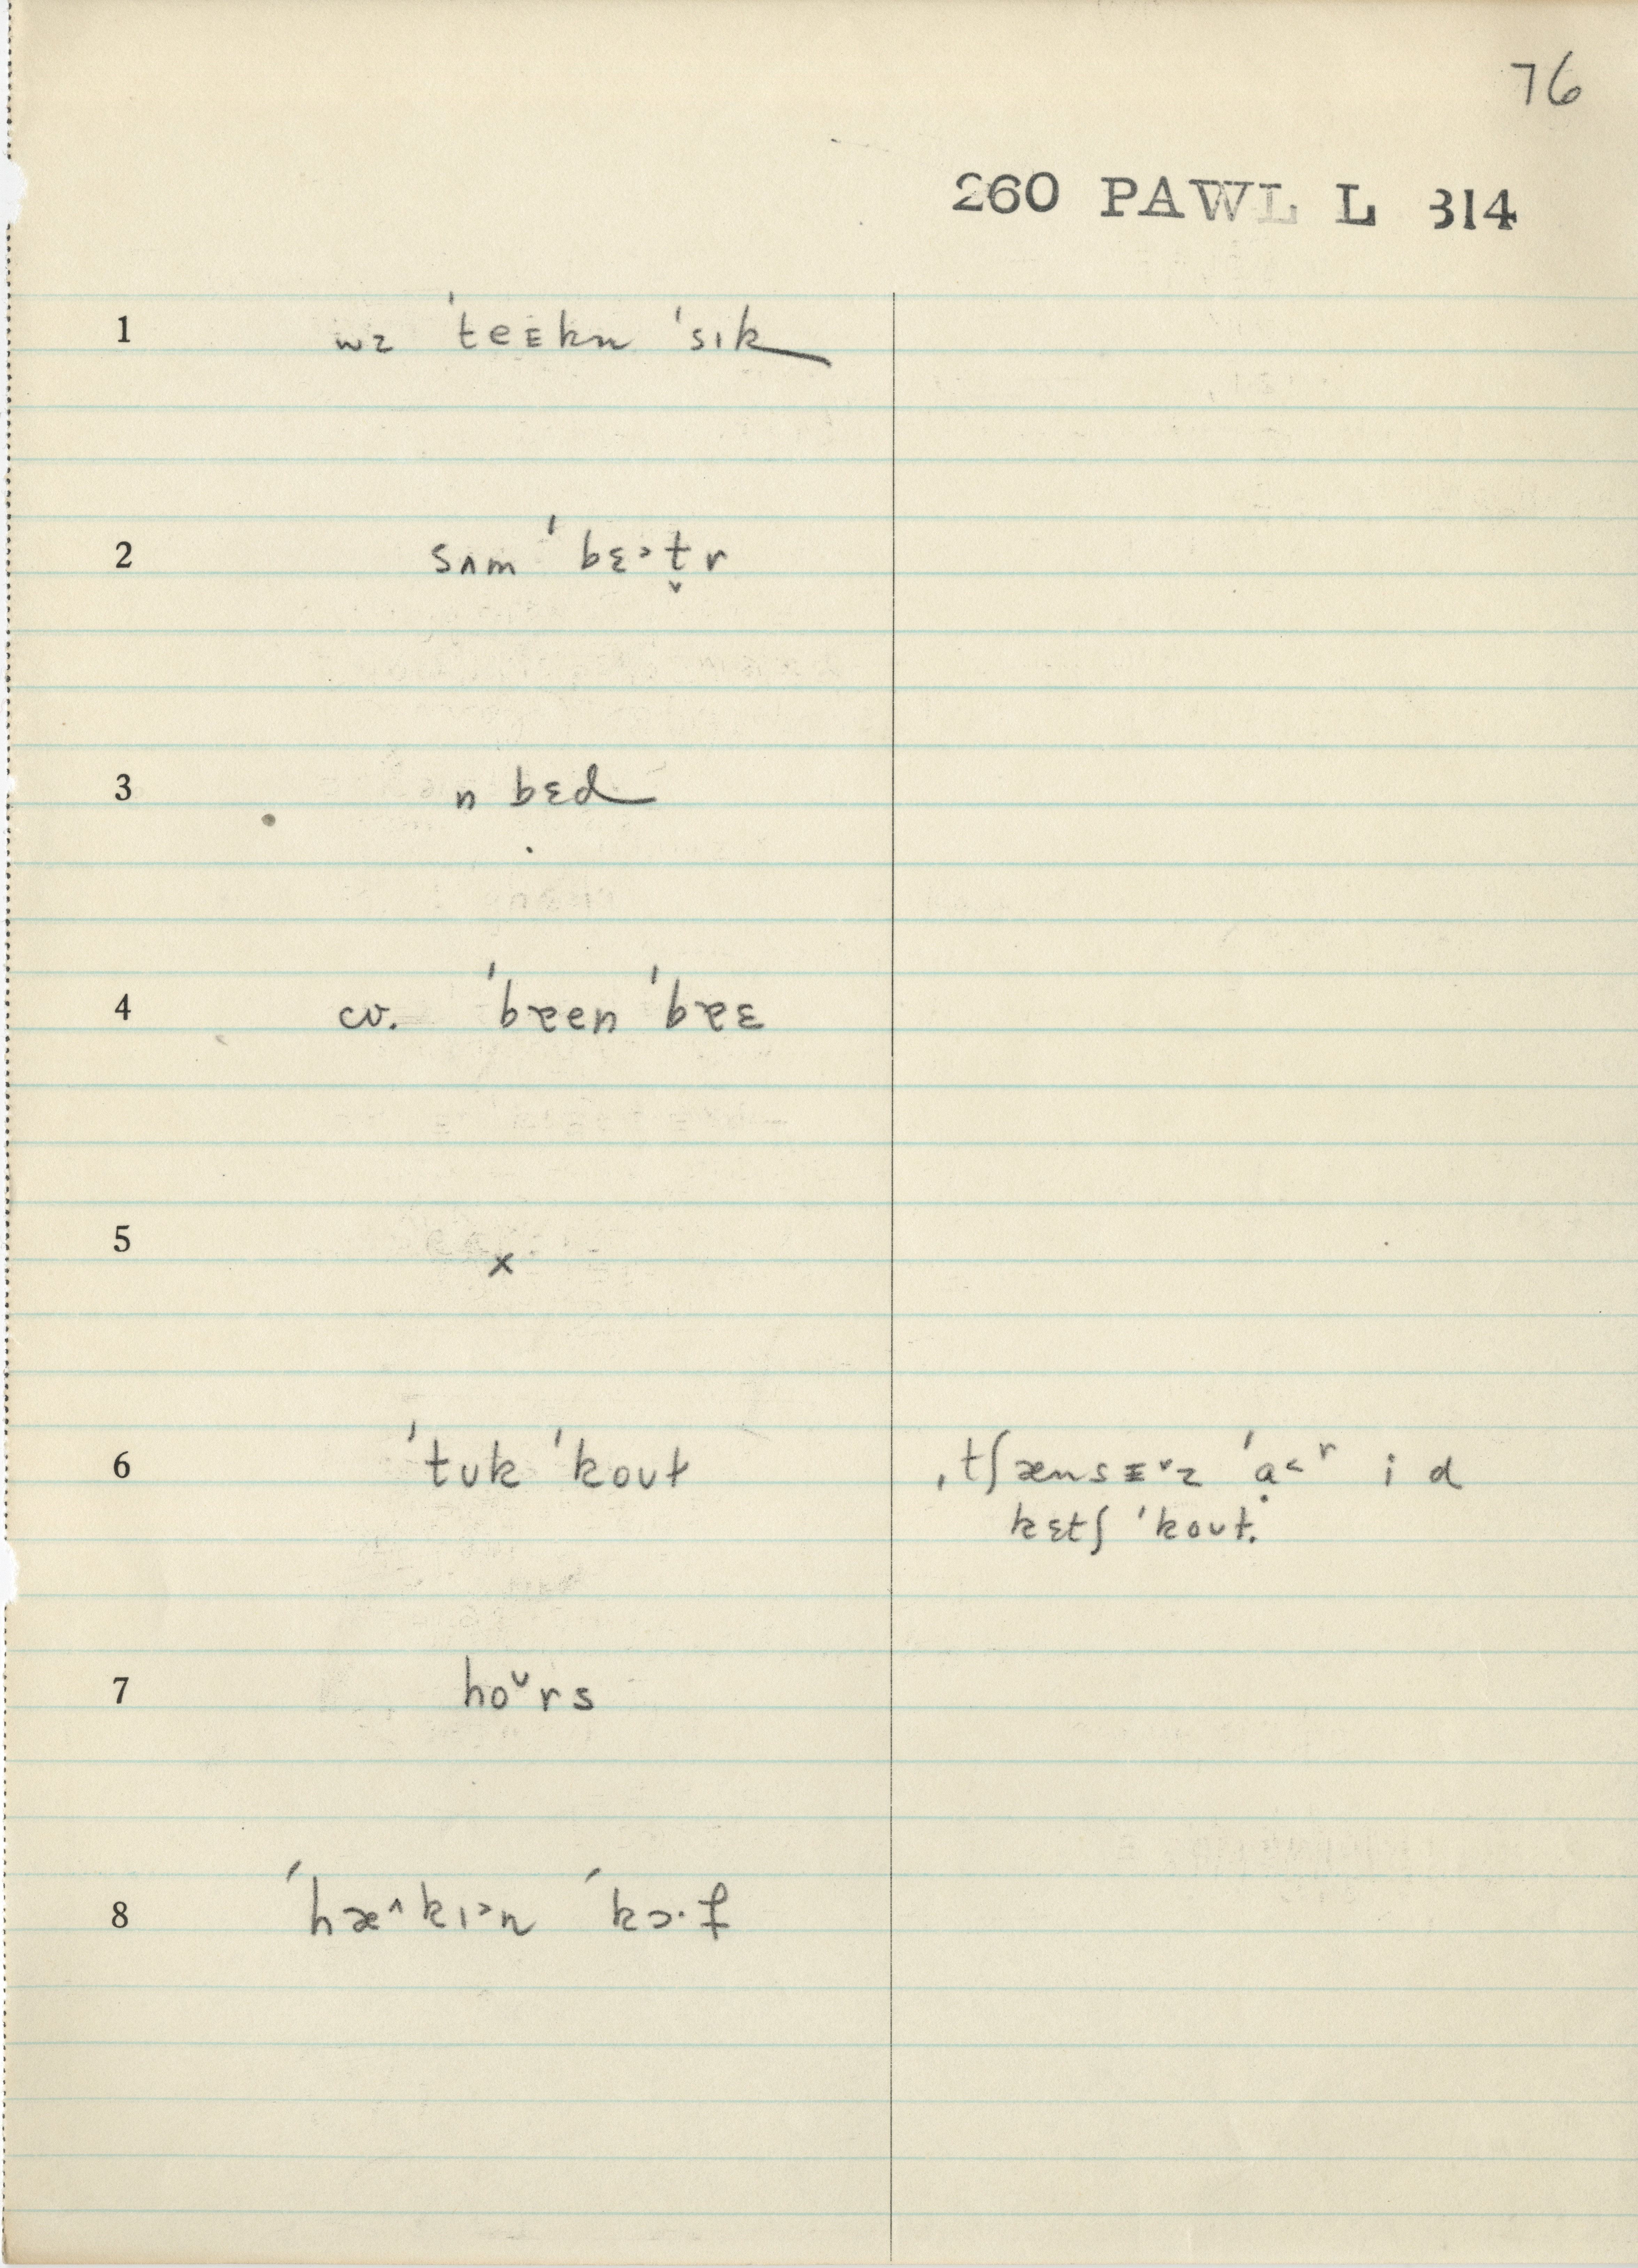 76
260 PAWL L 314
1 wz ˈteᴇkn ˈsɪk
2 sʌm ˈbɛ˃t̬r
3 n bɛd
4 cv. ˈbɛen ˈbɛɛ
5 x
6 ˈtʊk ˈkoʊt ˌtʃænsᴇ˅z ˈạ˂ʳ i d
kɛtʃ ˈkoʊt.
7 hoᶷrs
8 ˈhæ^kɪ˃n ˈkɔ·f